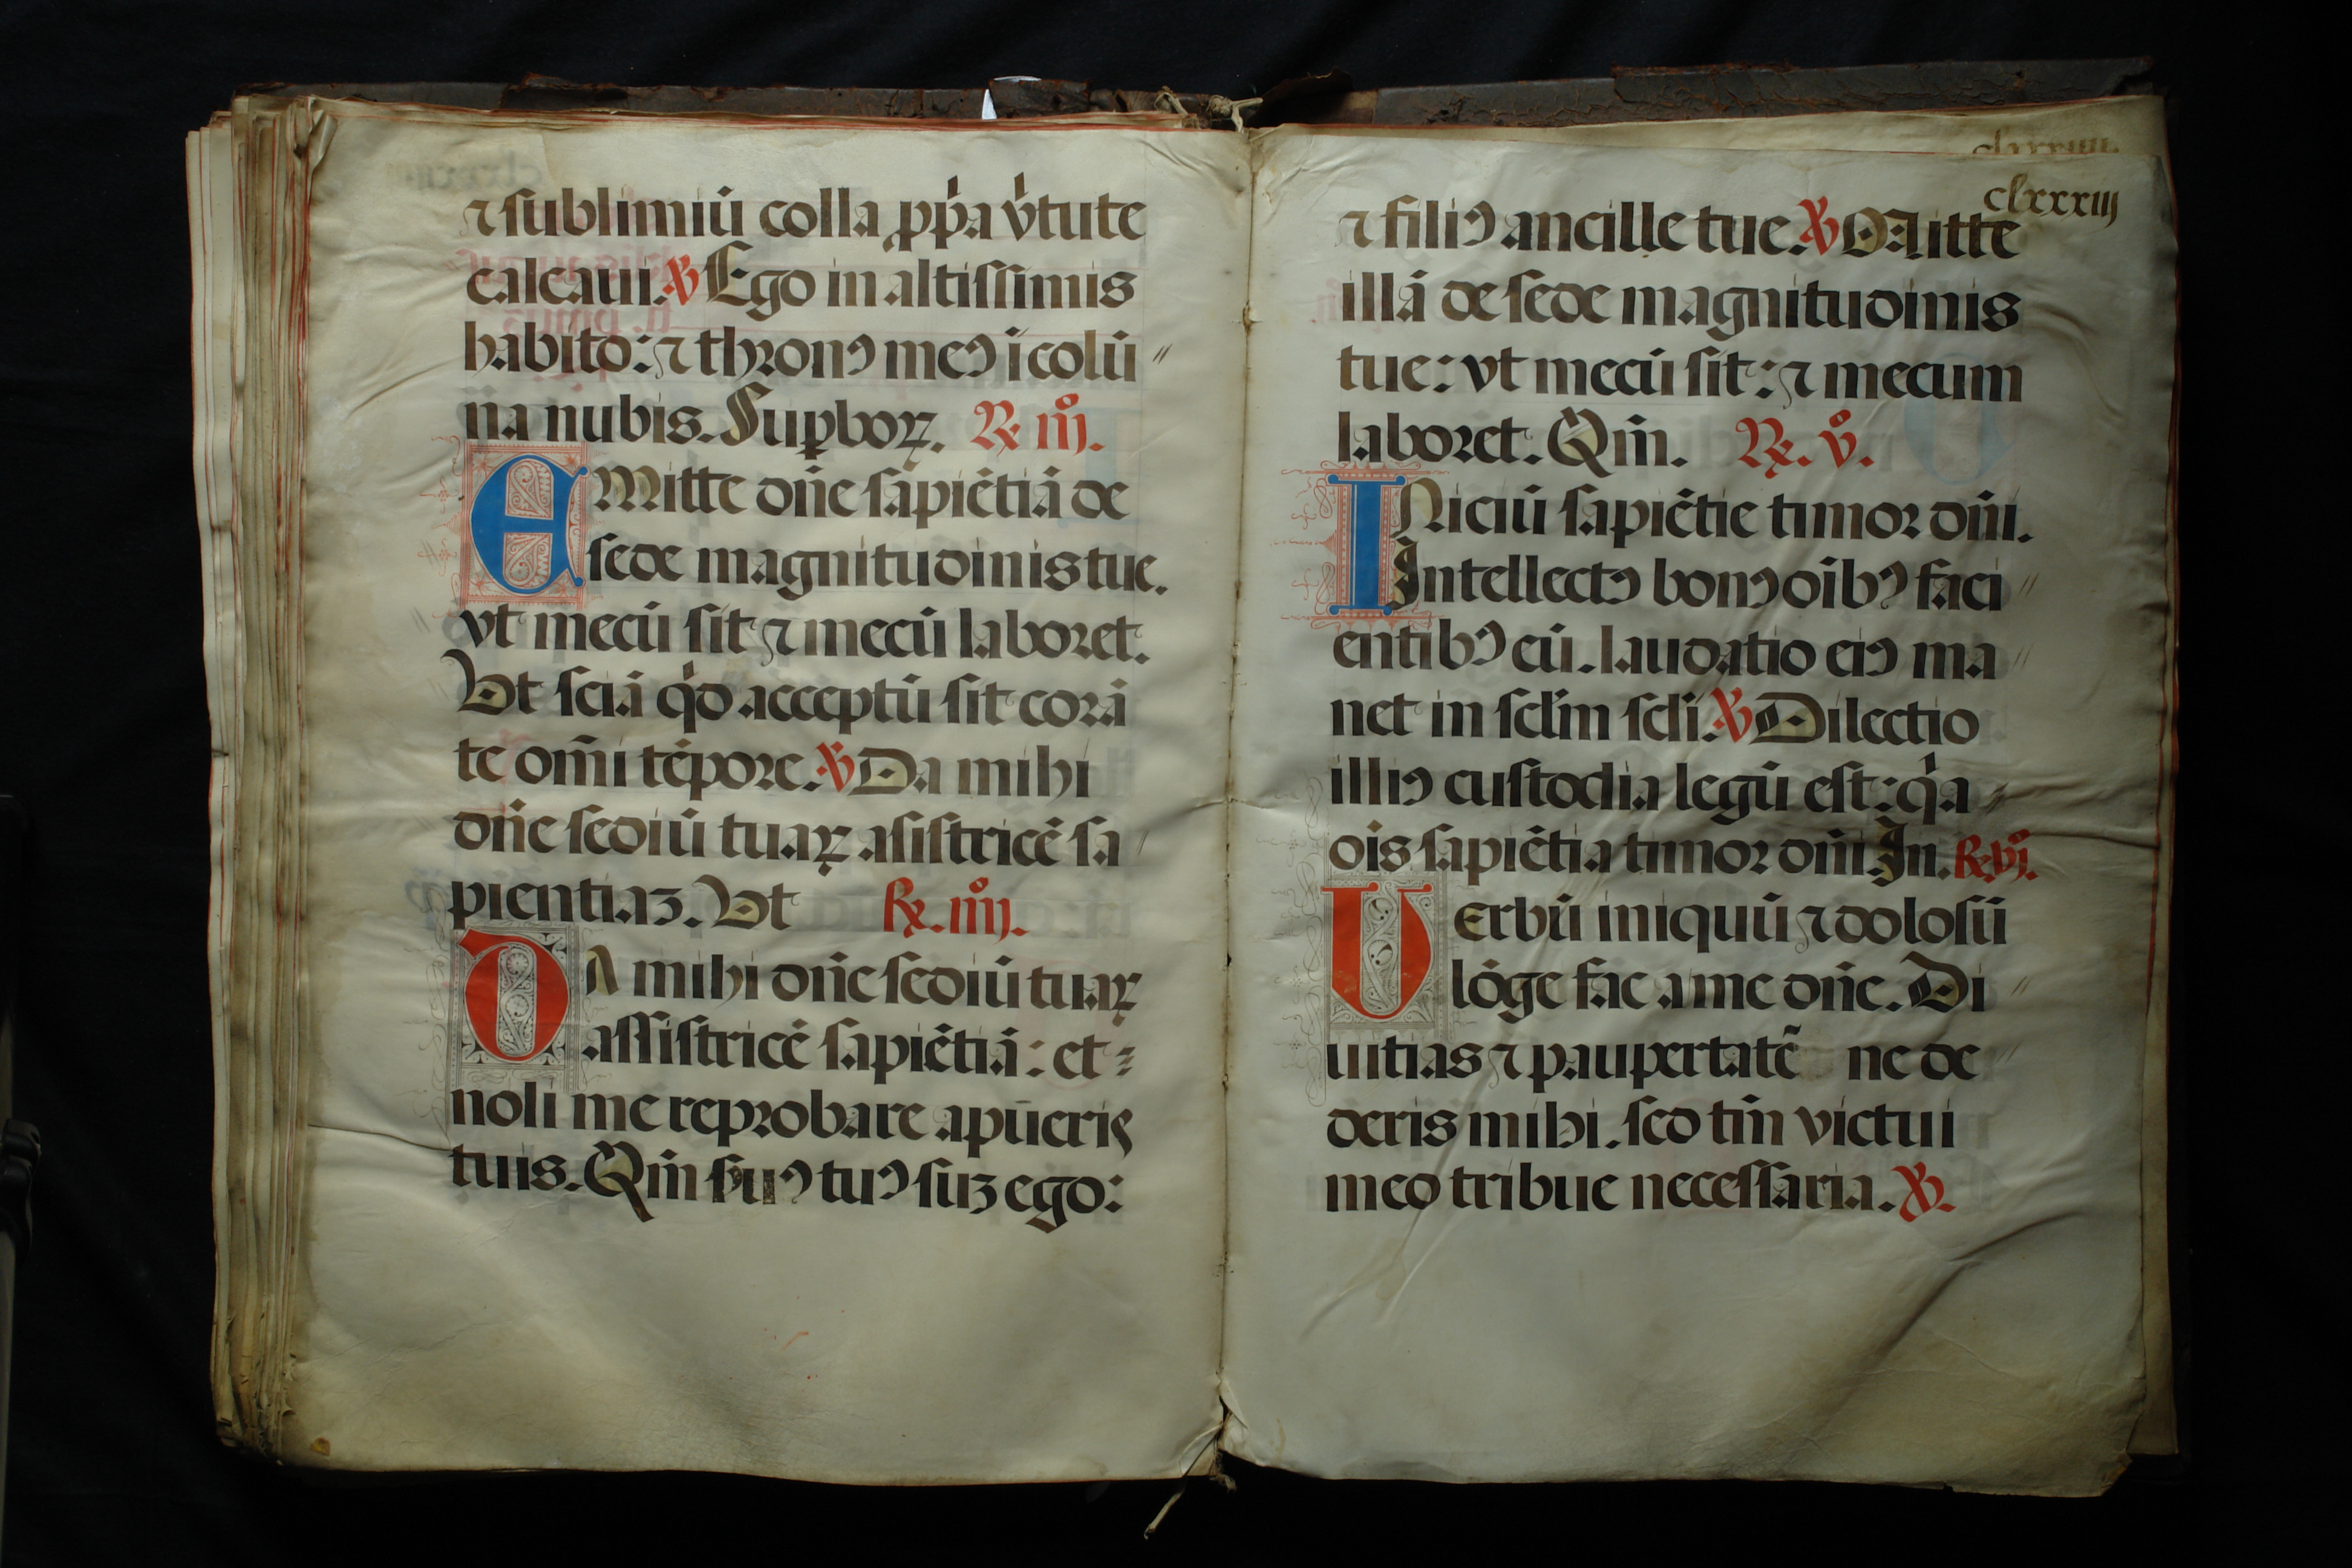 ⁊ sublimiū colla ꝓp̍a v̍tute
calcaui. ℣ Ego in altissimis
habito: ⁊ thronꝰ meꝰ ī colū
na nubis. Suꝑboꝝ. ℞ iijͦ.
EMitte dn̄e sapiētiā de
sede magnitudinis tue.
vt mecū sit ⁊ mecū laboret.
Vt sciā q̍d acceptū sit corā
te om̄i tēpore. ℣ Da mihi
dn̄e sediū tuaꝝ asistricē sa
pientiaꝫ. Vt ℞. iiijͦ.
DA mihi dn̄e sediū tuaꝝ
assistricē sapiētiā: et
noli me reprobare a pūeris
tuis. Qm̄ suꝰ tuꝰ suꝫ ego:
clxxxiij
⁊ filiꝰ ancille tue. ℣ Mitte
illā de sede magnitudinis
tue: vt mecū sit: ⁊ mecum
laboret. Qm̄. ℞. vͦ.
INiciū sapiētie timor dn̄i.
Intellectꝰ bonꝰ oībꝰ faci
entibꝰ eū. laudatio eiꝰ ma
net in sclm̄ scli. ℣ Dilectio
illiꝰ custodia legū est: q̍a
ois sapiētia timor dn̄i In. ℞. vjͦ.
Verbū iniquū ⁊ dolosū
lōge fac a me dn̄e. Di
uitias ⁊ paupertatē ne de
deris mihi. sed tm̄ victui
meo tribue necessaria. ℣.